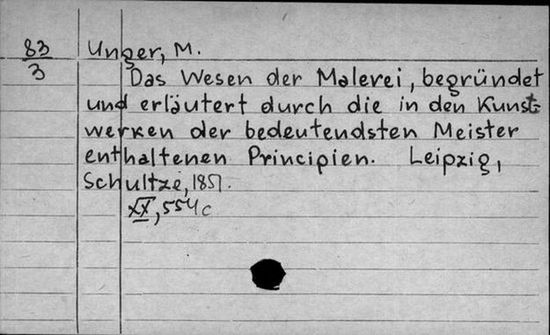 83 Unger, M.
3 Das Wesen der Malerei, begründet
und erläutert durch die in den Kunst-
werken der bedeutendsten Meister
enthaltenen Principien. Leipzig,
Schultze, 1851.
XX, 554c